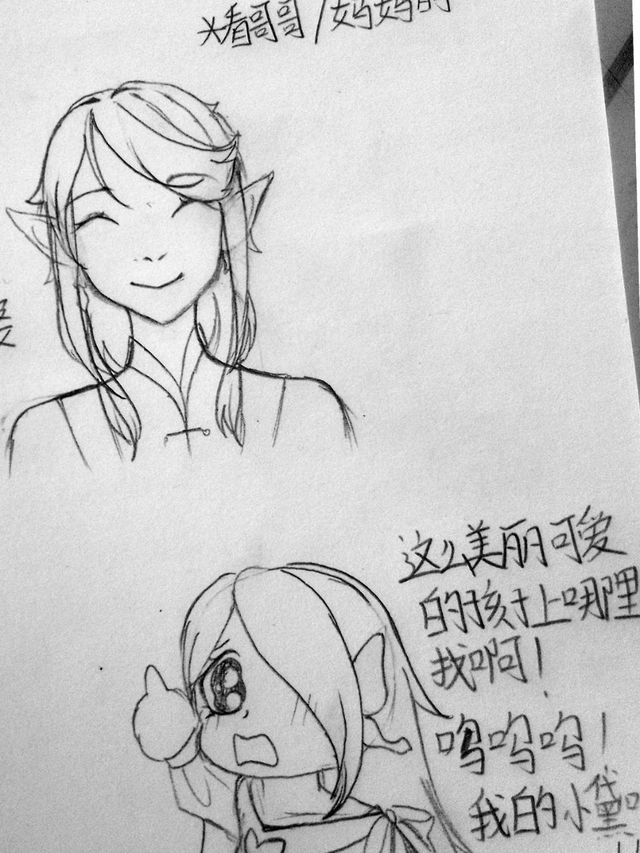 看哥哥/妈妈的
这么美丽可爱
的孩子上哪里
找啊!
呜呜呜!
我的小黛